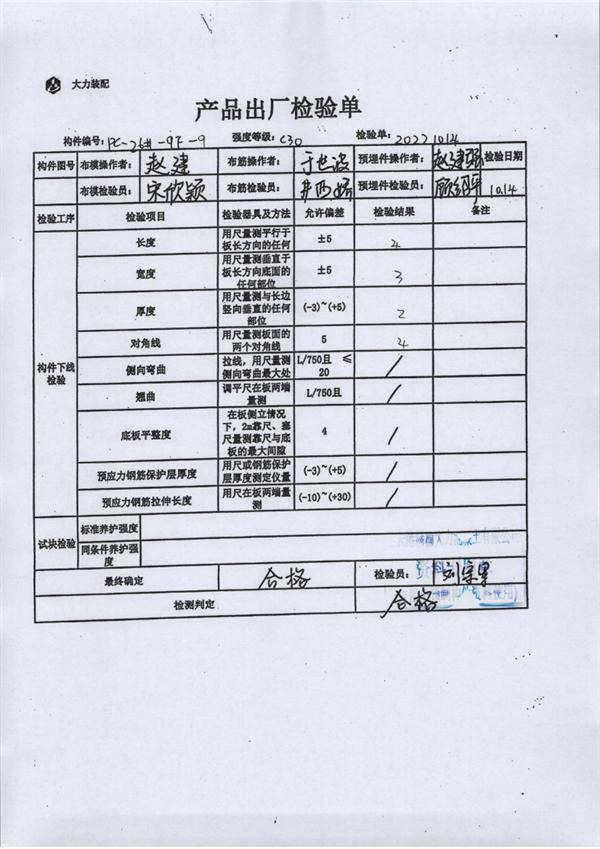 大力装配
产品出厂检验单
构件编号: PC-26#-9F-9 强度等级: C30 检验单: 2022 10.14
构件图号 布模操作者: 赵建 布筋操作者: 预埋件操作者: 赵建强 检验日期
布模检验员: 宋欣颖 布筋检验员: 预埋件检验员: 10.14
检验工序 检验项目 检验器具及方法 允许偏差 检验结果 备注
构件下线检验
长度 用尺量测平行于板长方向的任何 ±5 4
宽度 用尺量测垂直于板长方向底面的任何部位 ±5 3
厚度 用尺量测与长边竖向垂直的任何部位 (-3)~(+5) 2
对角线 用尺量测板面的两个对角线 5 4
侧向弯曲 拉线，用尺量测侧向弯曲最大处 L/750且 ≤20 /
翘曲 调平尺在板两端量测 L/750且 /
底板平整度 在板侧立情况下，2m靠尺、塞尺量测靠尺与底板的最大间隙 4 /
预应力钢筋保护层厚度 用尺或钢筋保护层厚度测定仪量 (-3)~(+5) /
预应力钢筋拉伸长度 用尺在板两端量测 (-10)~(+30) /
试块检验 标准养护强度
同条件养护强度
最终确定 合格 检验员:
检测判定 合格